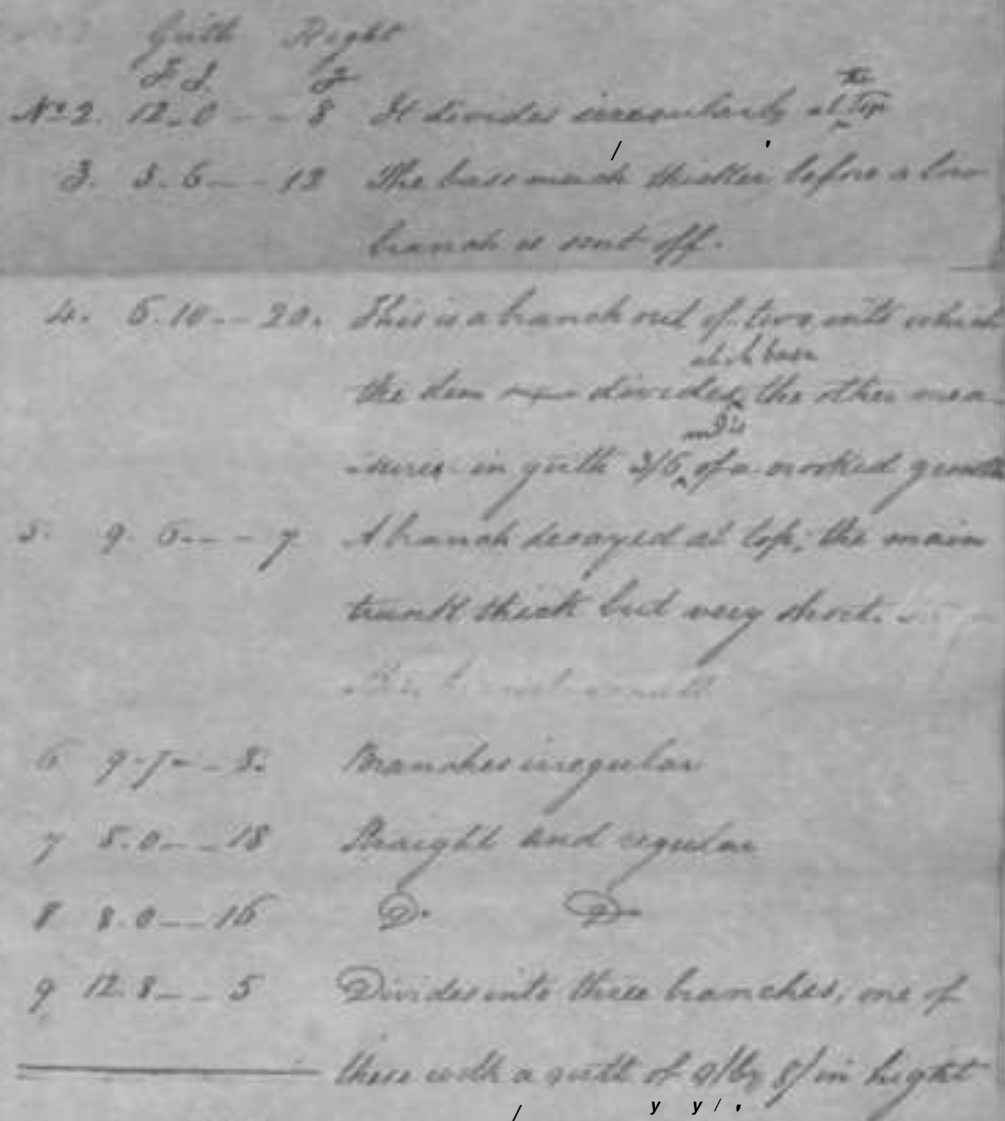 Girth Hight
F I. F
No 2. 12.0 -- 8 It divides irregularly at the top
3. 8.6 -- 12 The base much thicker before a low
branch is sent off.
4. 6.10 -- 20. This is a branch out of two into which
the stem divides at its base the other mea-
sures in girth 3/6 and is of a crooked growth
5. 9.6 --- 7 A branch decayed at top, the main
trunk thick but very short.
6 9.7 -- 8. Branches irregular
7 8.0 -- 18 Straight and regular
8 8.0 -- 16 Do. Do.
9 12.8 -- 5 Divides into three branches, one of
these with a girth of 9/ by 8/ in hight